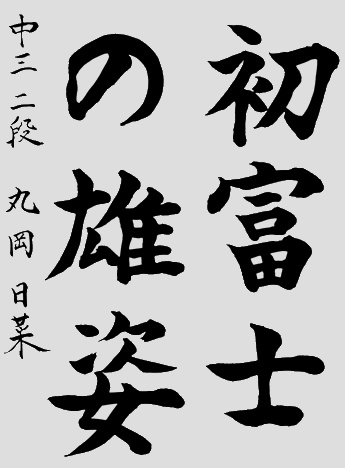 初富士
の雄姿
中三 二段 丸岡日菜